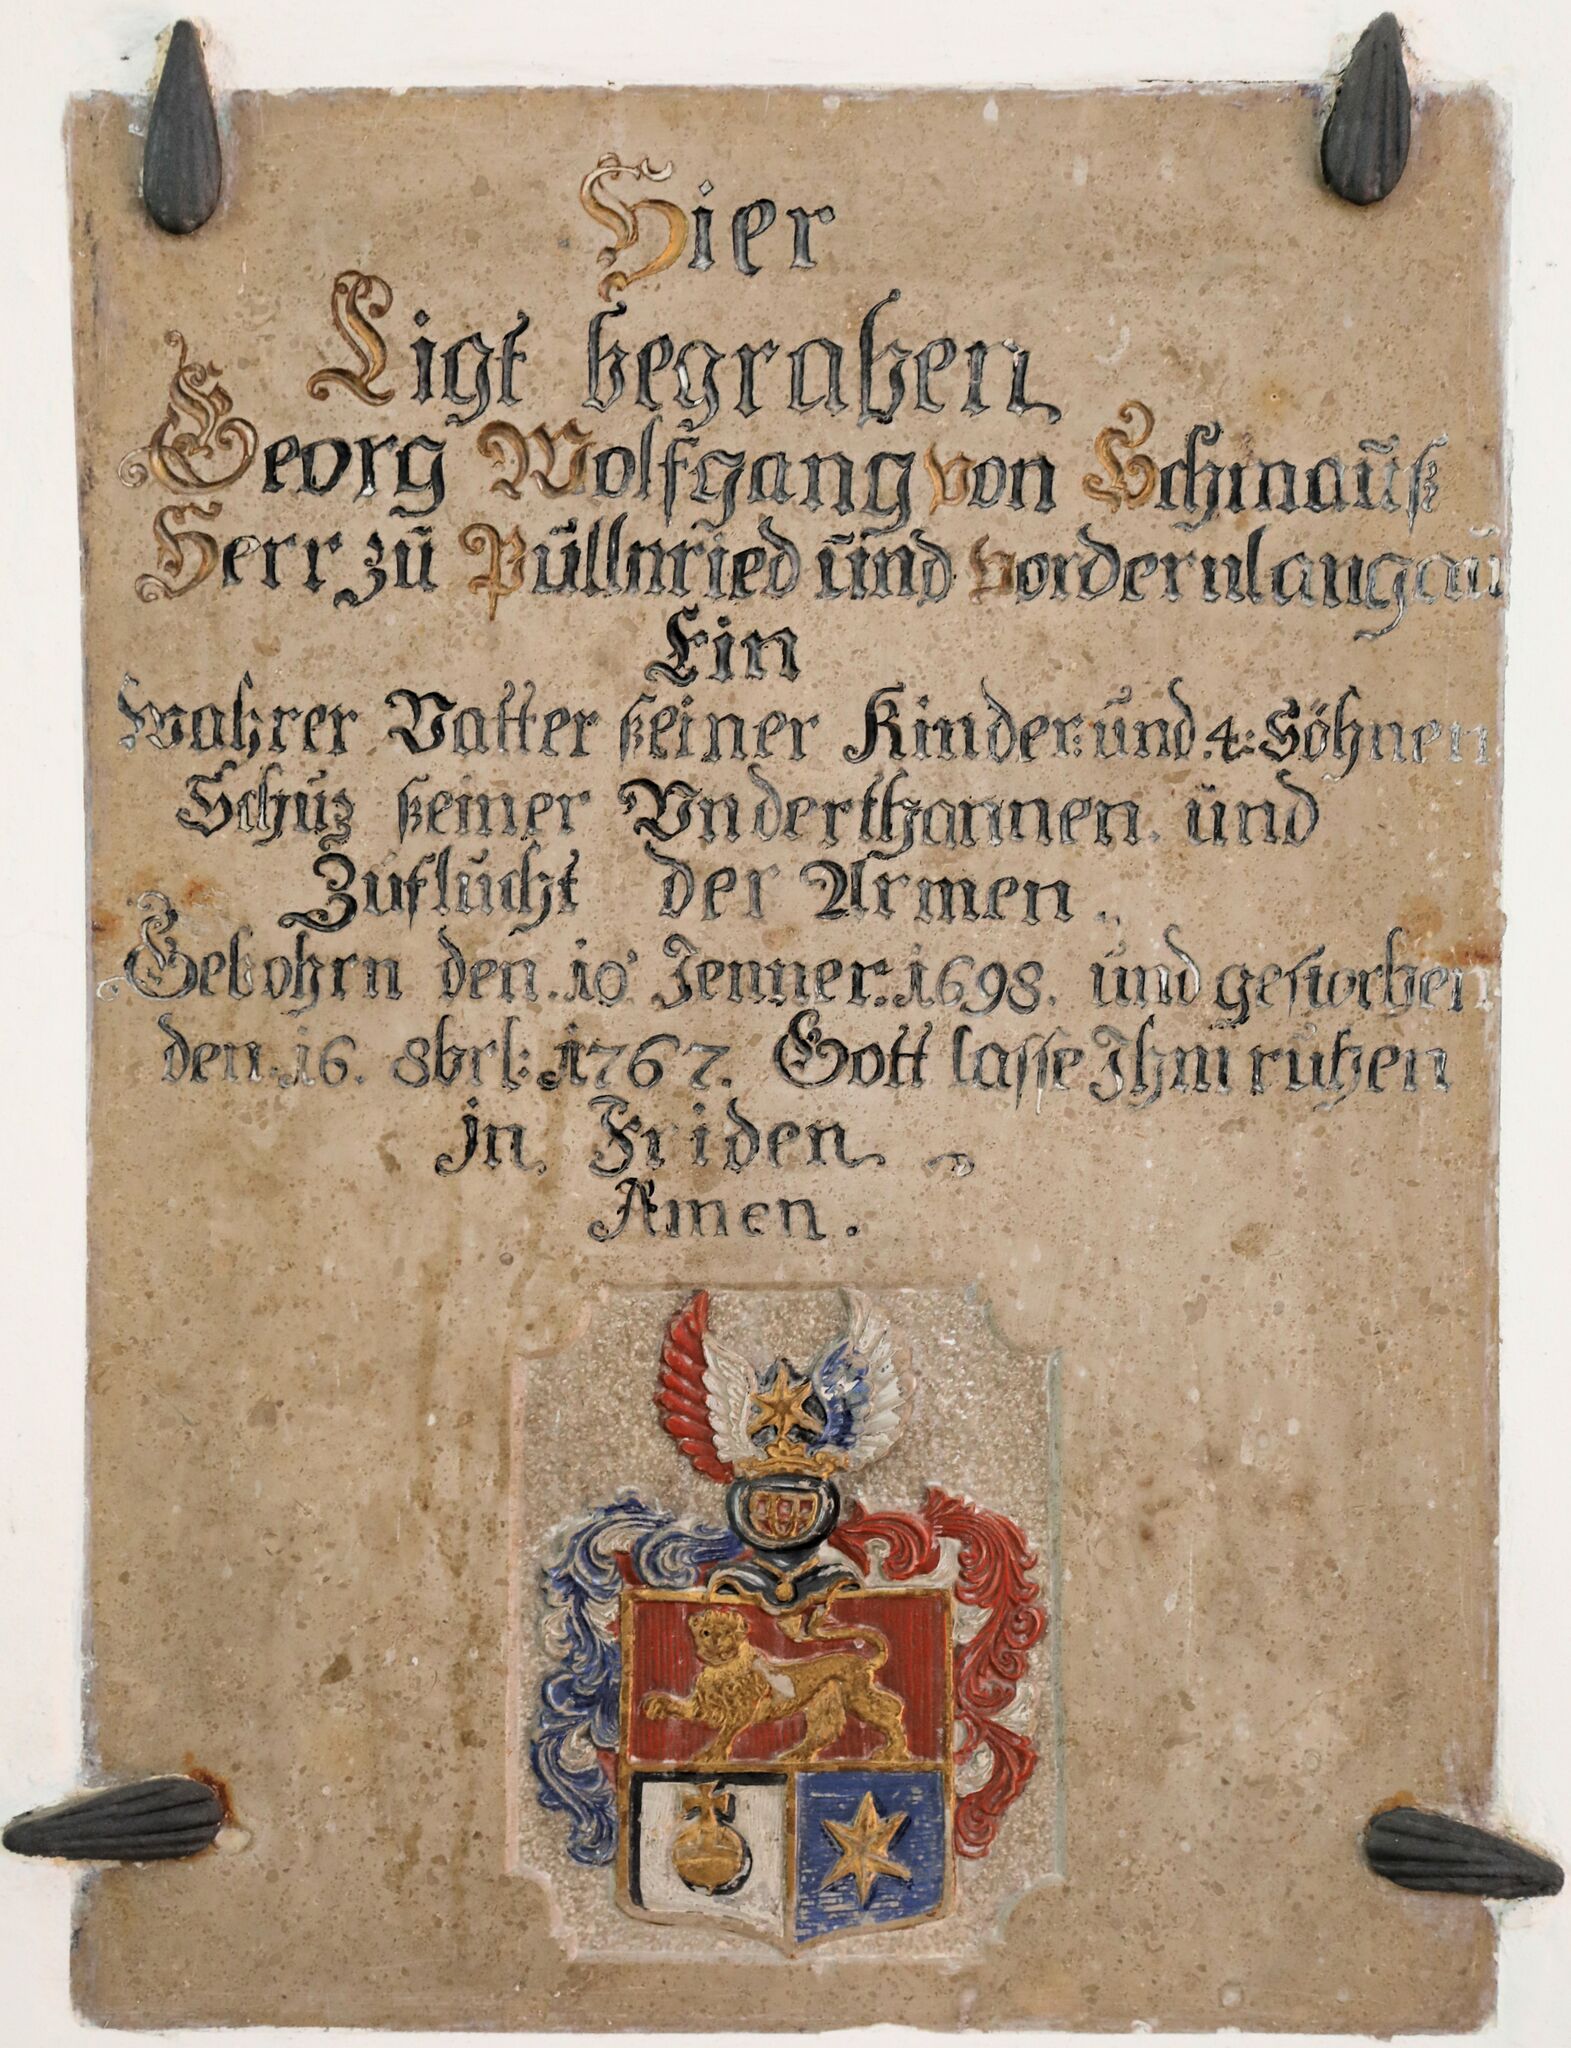 Hier
Ligt begraben
Georg Wolfgang von Schmauß
Herr zu Püllnried und vordernlangau
Ein
wahrer Vatter seiner Kinder: und .4: Söhnen
Schuz seiner Underthannen. und
Zuflucht der Armen.
Gebohrn den .10 Jenner. 1698. und gestorben
den. 16. 8brl: 1767. Gott lasse Ihm ruhen
in Friden.
Amen.